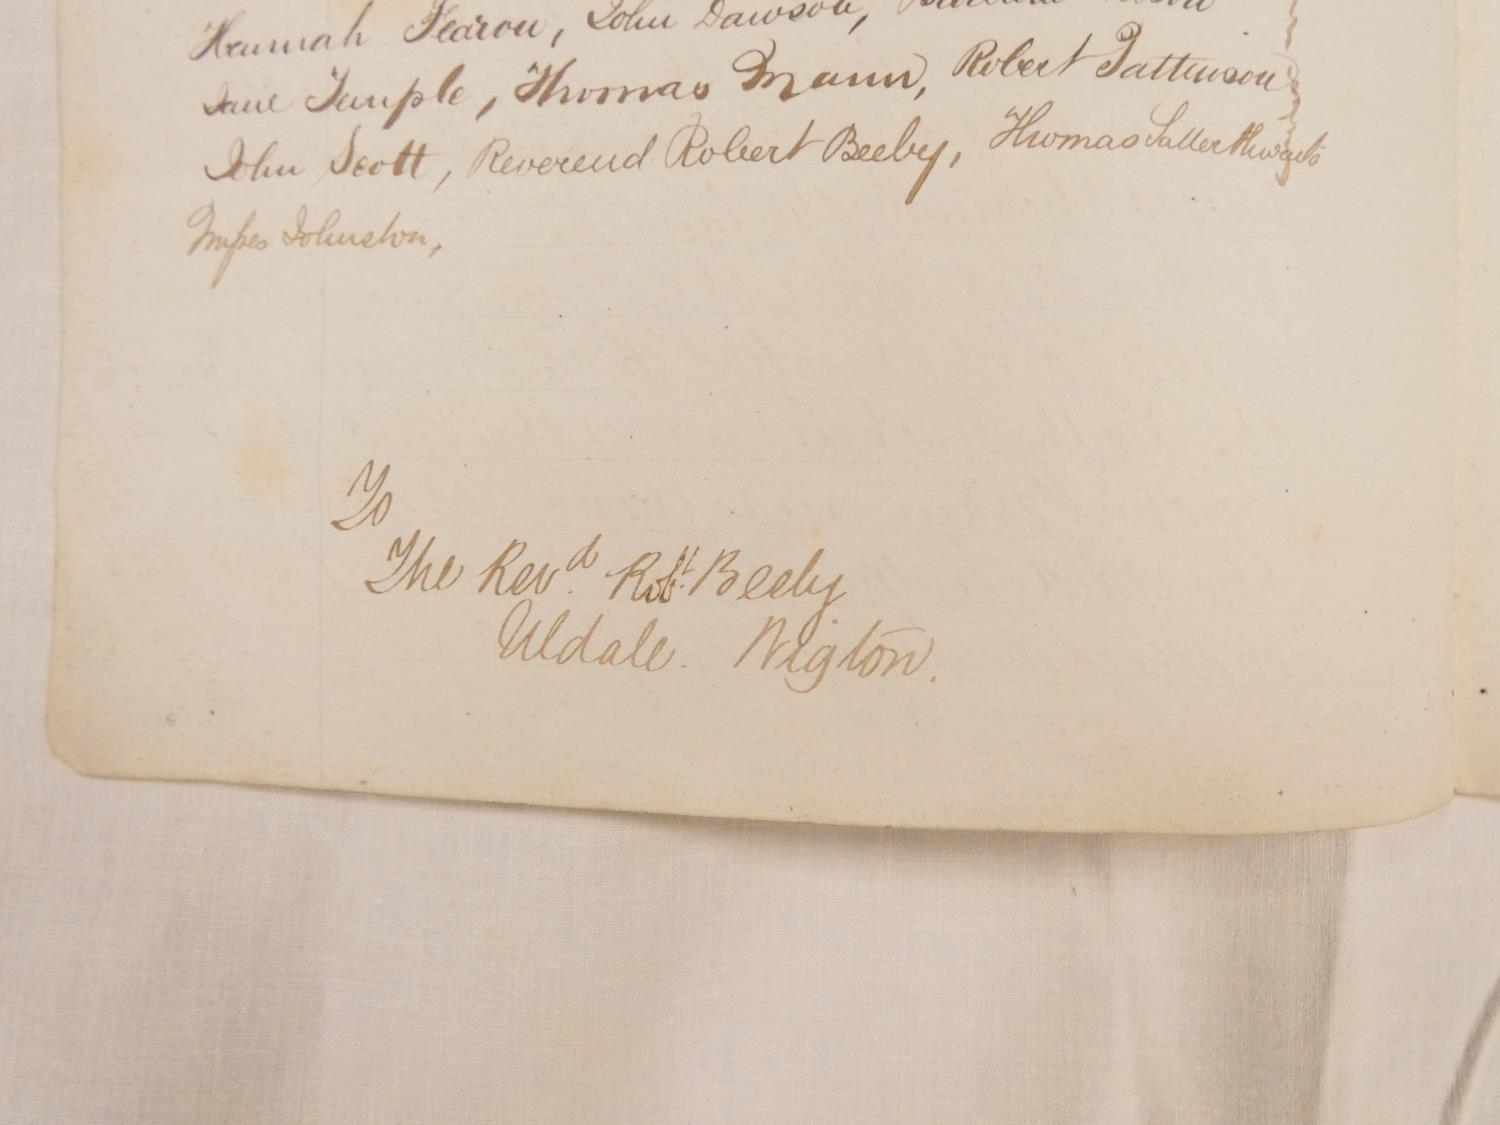 Hannah Fearon, John Dawson, Barbara
Jane Temple, Thomas Mann, Robert Pattinson
John Scott, Reverend Robert Beeby, Thomas Satterthwaite
Johnston,
To
The Revd. Robt. Beeby
Uldale. Wigton.